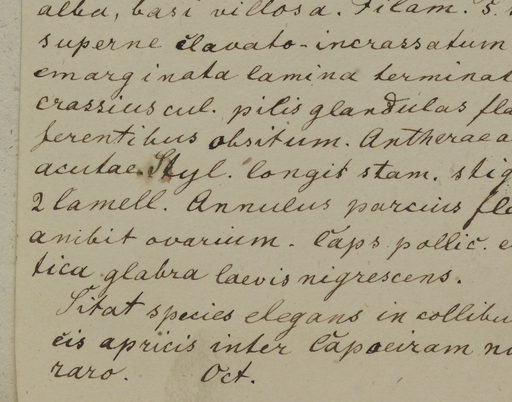 alba, basi villosa. Filam. 5.
superne clavato-incrassatum
emarginata lamina terminat
crassiuscul. pilis glandulas fla
ferentibus obsitum. Antherae a
acutae. Styl. longit stam. stig
2 lamell. Annulus parcius fla
ambit ovarium. Caps pollic. e
tica glabra laevis nigrescens.
Sitat species elegans in collibu
cis apricis inter Capoeiram n
raro. Oct.